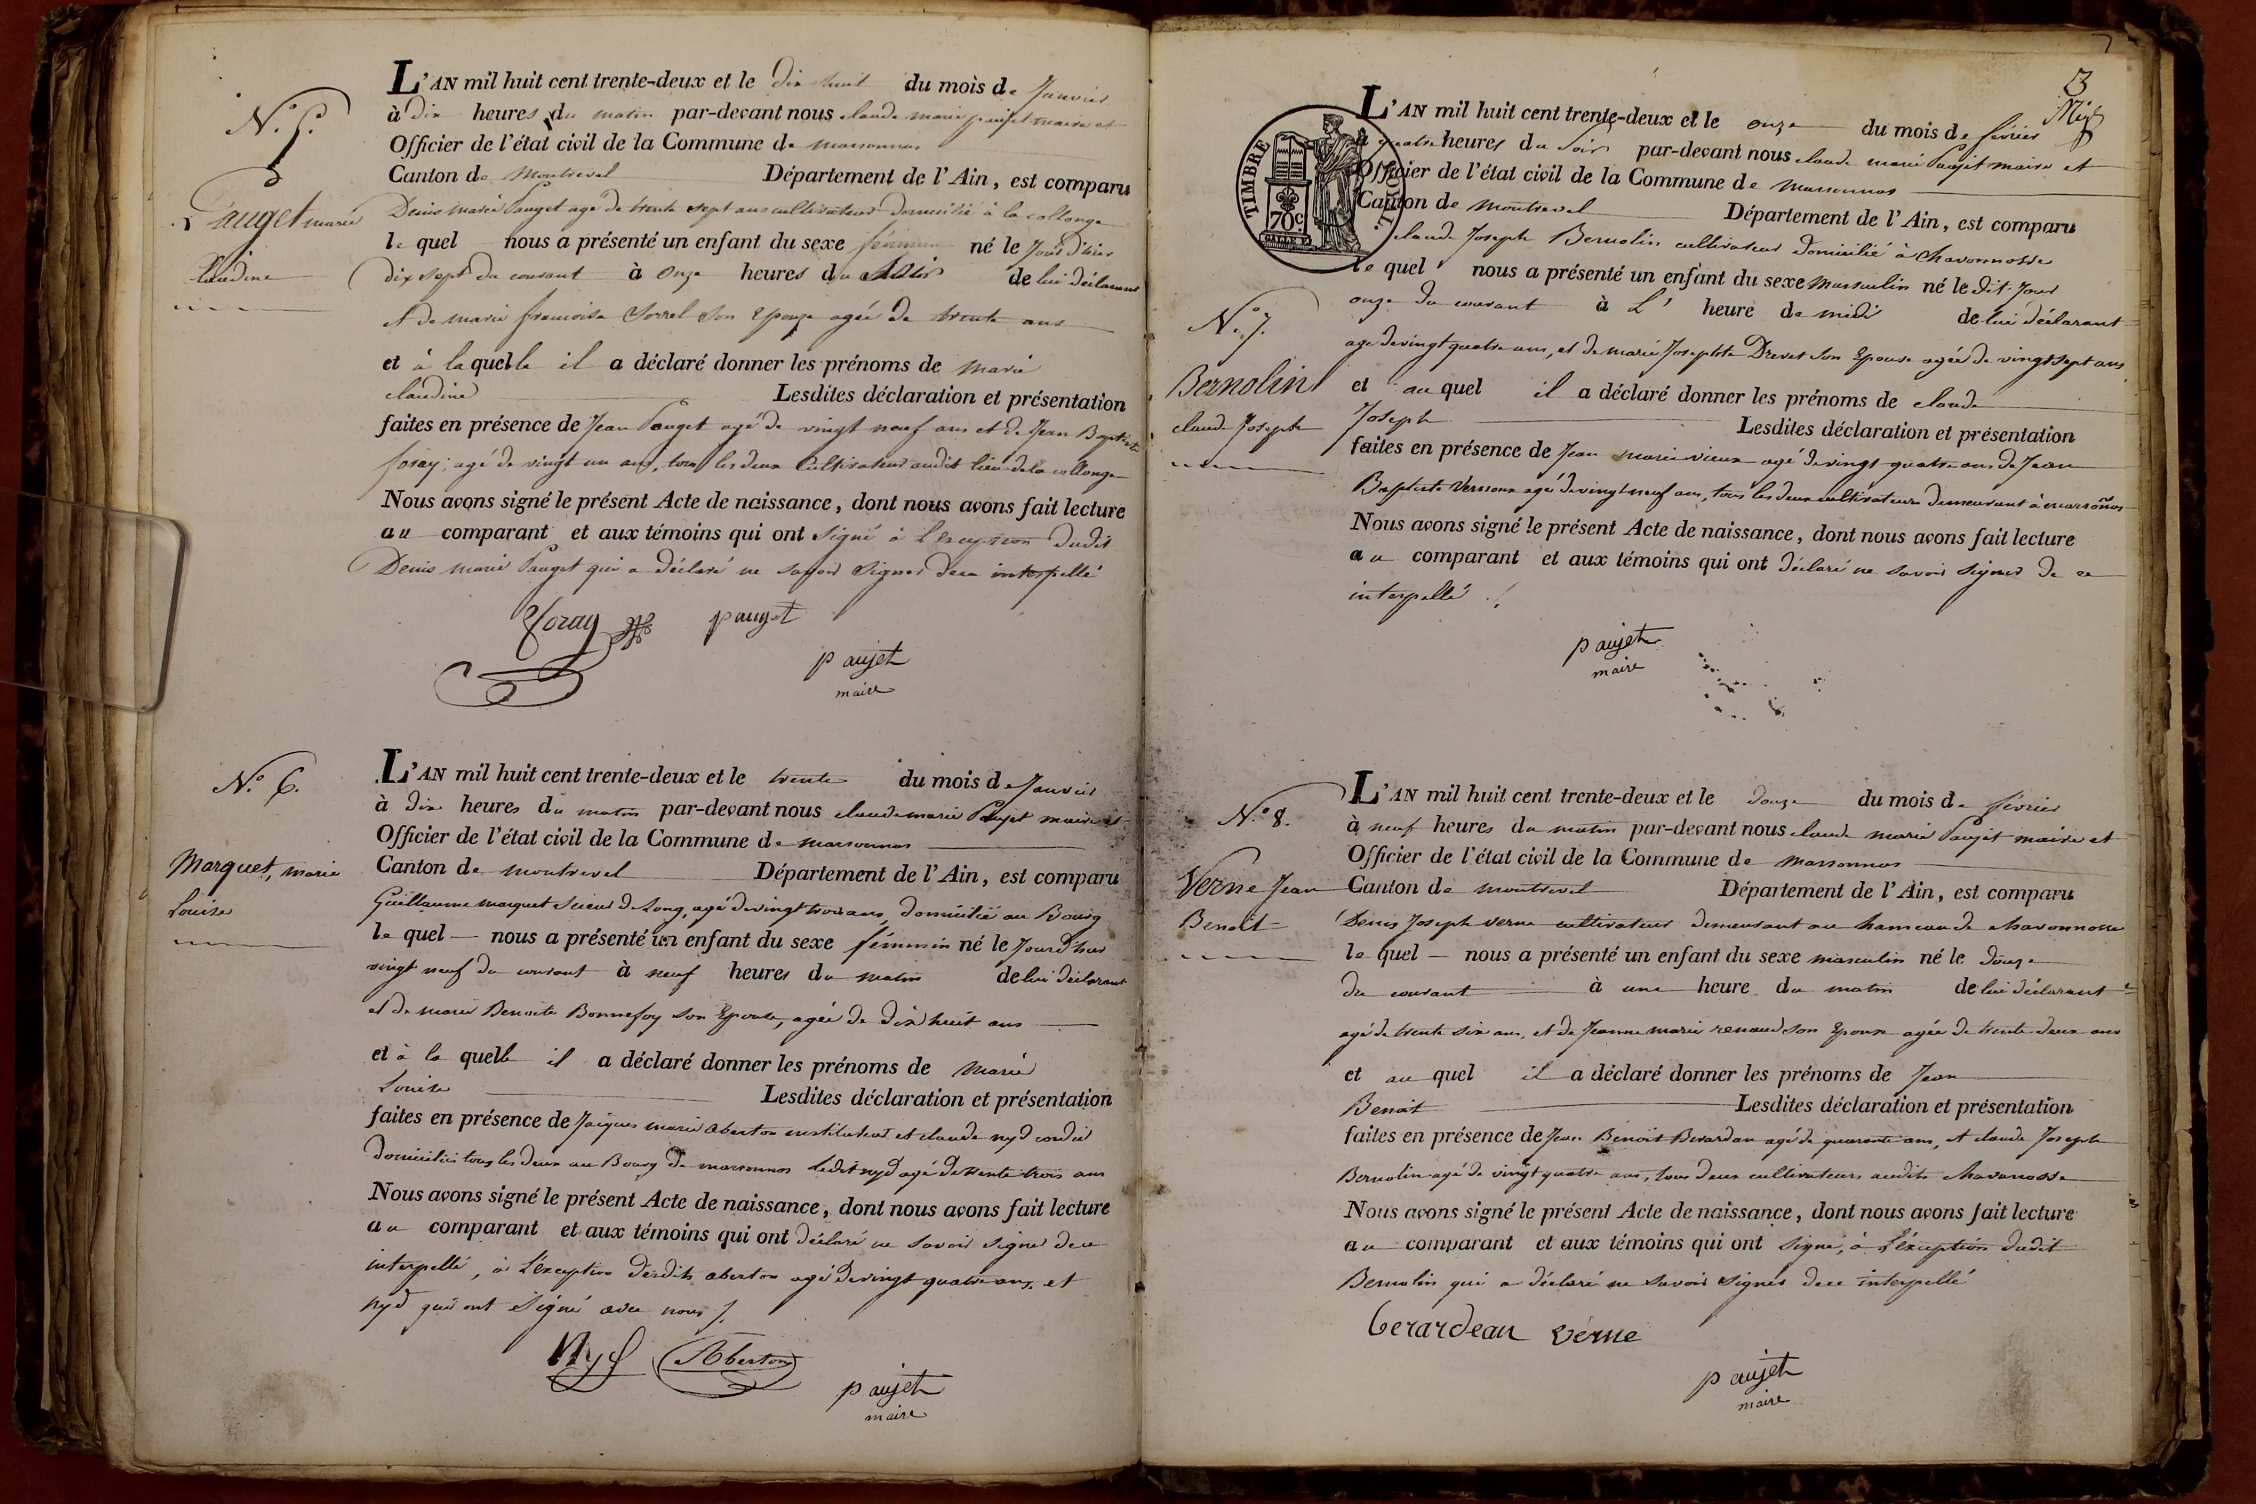 N.° 5.
Pauget marie
Claudine
L'AN mil huit cent trente-deux et le dix huit du mois de Janvier
à dix heures du matin par-devant nous claude marie paujet maire et
Officier de l'état civil de la Commune de marsonnas
Canton de Montrevel Département de l'Ain, est comparu
Denis marie Pauget agé de trente sept ans cultivateur domicilié à la collonge
le quel nous a présenté un enfant du sexe féminin né le jour d'hier
dix sept du courant à onze heures du soir de lui déclarant
et de marie francoise Sorrel son Epouse agée de trente ans
et à la quelle il a déclaré donner les prénoms de marie
claudine Lesdites déclaration et présentation
faites en présence de Jean Pauget agé de vingt neuf ans et de Jean Baptiste
foray, agé de vingt un ans, tous les deux Cultivateurs audit lieu de la collonge
Nous avons signé le présent Acte de naissance, dont nous avons fait lecture
au comparant et aux témoins qui ont signé à L'exception dudit
Denis marie Pauget qui a déclaré ne savoir signer de ce interpellé
foray pauget
paujet
maire
N.° 6.
Marquet, marie
Louise
L'AN mil huit cent trente-deux et le trente du mois de Janvier
à dix heures du matin par-devant nous claude marie Paujet maire et
Officier de l'état civil de la Commune de marsonnas
Canton de montrevel Département de l'Ain, est comparu
Guillaume marquet Scieur de Long, agé de vingt trois ans domicilié au Bourg
le quel nous a présenté un enfant du sexe féminin né le Jour d'hier
vingt neuf du courant à neuf heures du matin de lui déclarant
et de marie Benoite Bonnefoy son Epouse, agée de dix huit ans
et à la quelle il a déclaré donner les prénoms de Marie
Louise Lesdites déclaration et présentation
faites en présence de Jacques marie aberton instituteur et claude nyd cordier
domiciliés tous les deux au Bourg de marsonnas ledit nyd agé de trente trois ans
Nous avons signé le présent Acte de naissance, dont nous avons fait lecture
au comparant et aux témoins qui ont déclaré ne savoir signer de ce
interpellé, à L'exception desdits aberton agé de vingt quatre ans, et
nyd qui ont signé avec nous /.
Nyd Aberton
paujet
maire
3
TIMBRE ROYAL
70 c
N.° 7.
Bernolin
claude Joseph
L'AN mil huit cent trente-deux et le onze du mois de février
à quatre heures du Soir par-devant nous claude marie Paujet maire et
Officier de l'état civil de la Commune de marsonnas
Canton de montrevel Département de l'Ain, est comparu
claude Joseph Bernolin cultivateur domicilié à chavannosse
le quel nous a présenté un enfant du sexe masculin né le dit Jour
onze du courant à L' heure de midi de lui déclarant
agé de vingt quatre ans, et de marie Josephte Drevet son Epouse agée de vingt sept ans
et au quel il a déclaré donner les prénoms de claude
Joseph Lesdites déclaration et présentation
faites en présence de Jean marie vieux agé de vingt quatre ans de Jean
Baptiste agé de vingt neuf ans, tous les deux cultivateurs demeurant à marsoñas
Nous avons signé le présent Acte de naissance, dont nous avons fait lecture
au comparant et aux témoins qui ont déclaré ne savoir signer de ce
interpellé ./.
paujet
maire
N.° 8.
Verne Jean
Benoit
L'AN mil huit cent trente-deux et le douze du mois de février
à neuf heures du matin par-devant nous claude marie Paujet maire et
Officier de l'état civil de la Commune de marsonnas
Canton de montrevel Département de l'Ain, est comparu
Denis Joseph verne cultivateur demeurant au hameau de chavannosse
le quel nous a présenté un enfant du sexe masculin né le douze
du courant à une heure du matin de lui déclarant
agé de trente six ans, et de Jeanne marie renaud son Epouse agée de trente deux ans
et au quel il a déclaré donner les prénoms de Jean
Benoit Lesdites déclaration et présentation
faites en présence de Jean Benoit Berardan agé de quarante ans, et claude Joseph
Bernolin agé de vingt quatre ans, tous deux cultivateurs audit chavanosse
Nous avons signé le présent Acte de naissance, dont nous avons fait lecture
au comparant et aux témoins qui ont signé, à L'exception dudit
Bernolin qui a déclaré ne savoir signer de ce interpellé
berardeau verne
paujet
maire